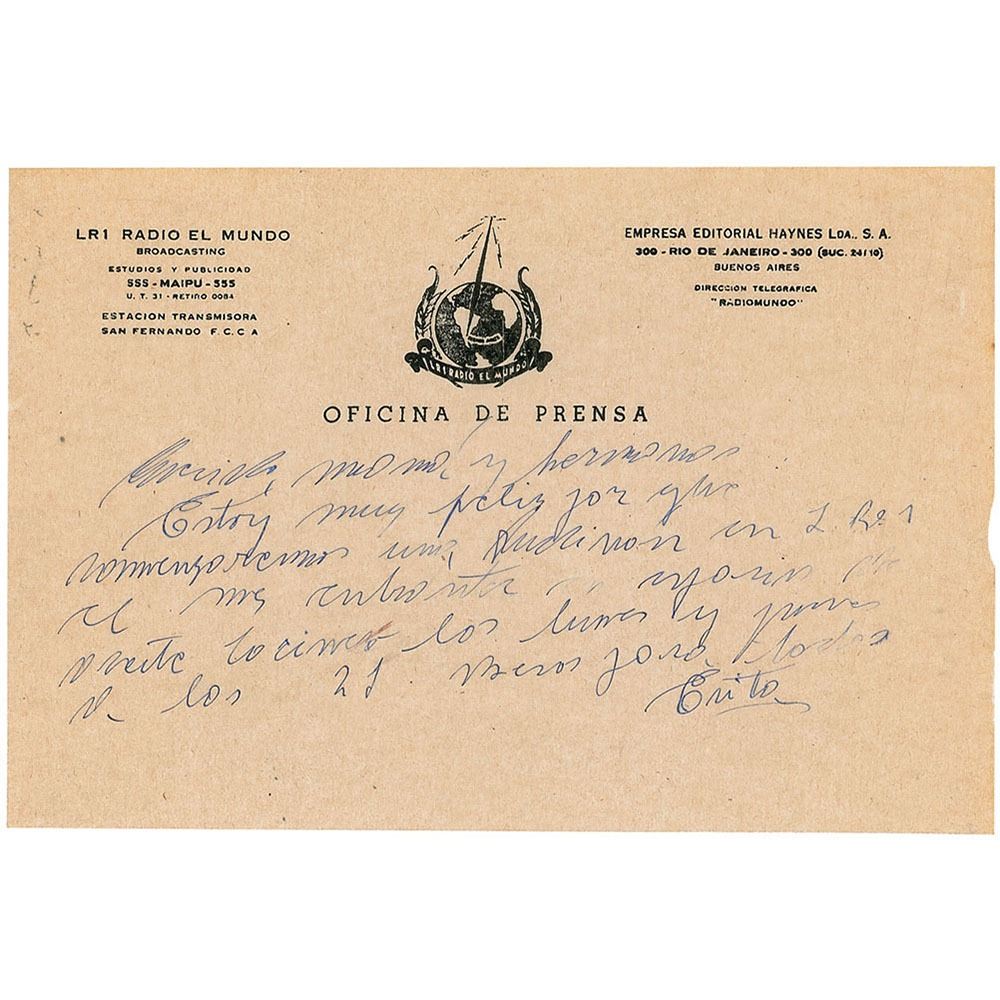 LR1 RADIO EL MUNDO
BROADCASTING
ESTUDIOS Y PUBLICIDAD
555 - MAIPU - 555
U. T. 31 - RETIRO 0084
ESTACION TRANSMISORA
SAN FERNANDO F. C. C A
LR1 RADIO EL MUNDO
EMPRESA EDITORIAL HAYNES LDA., S. A.
300 - RIO DE JANEIRO - 300 (SUC. 24/10)
BUENOS AIRES
DIRECCION TELEGRAFICA
"RADIOMUNDO"
OFICINA DE PRENSA
mamá, y hermanos
Estoy muy feliz por que
comenzaremos una en L. R. 1
el mes entrante
los lunes y jueves
a los 21 Besos para todos
Evita